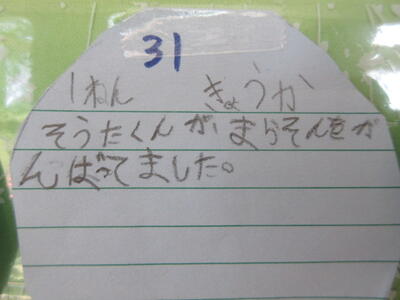 31
1ねん きょうか
そうたくんが、まらそんをが
んばってました。